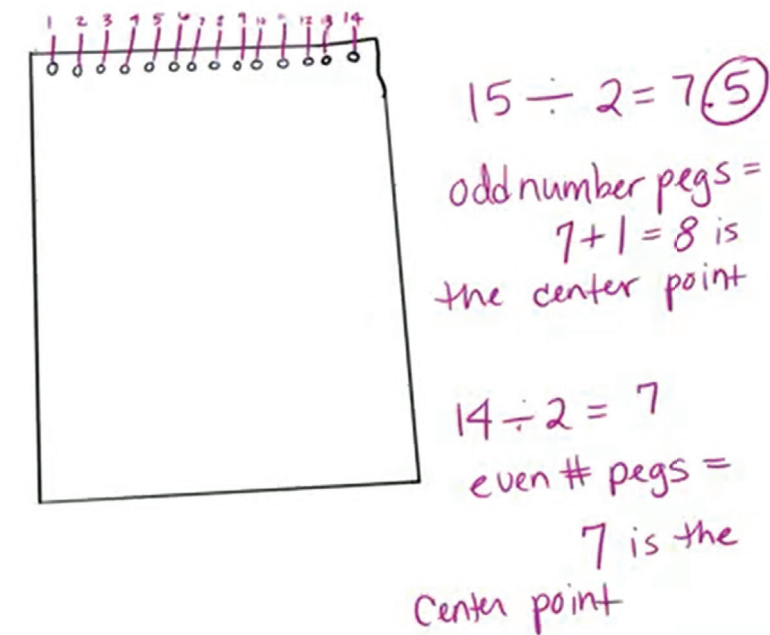 1 2 3 4 5 6 7 8 9 10 11 12 13 14
15 ÷ 2 = 7.5
odd number pegs =
7+1 = 8 is
the center point
14 ÷ 2 = 7
even # pegs =
7 is the
Center point